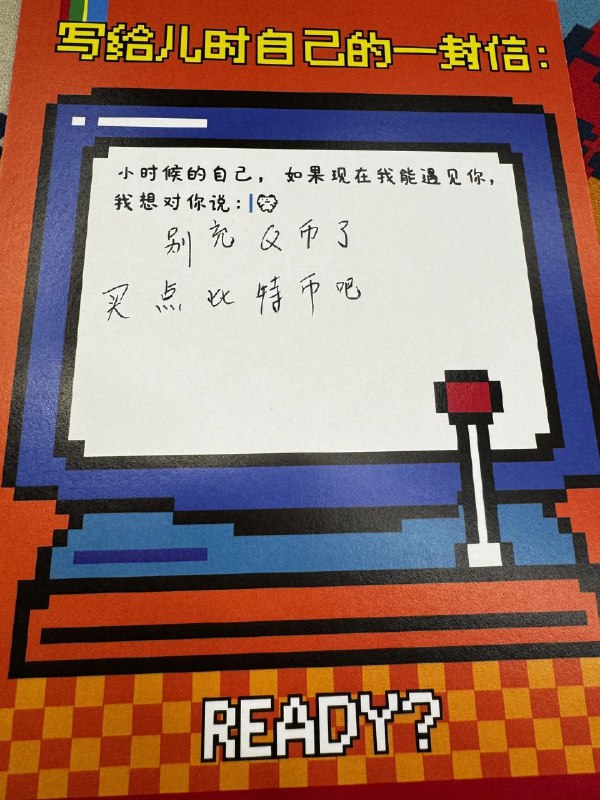 写给儿时自己的一封信：
小时候的自己，如果现在我能遇见你，
我想对你说：
别充Q币了
买点比特币吧
READY?